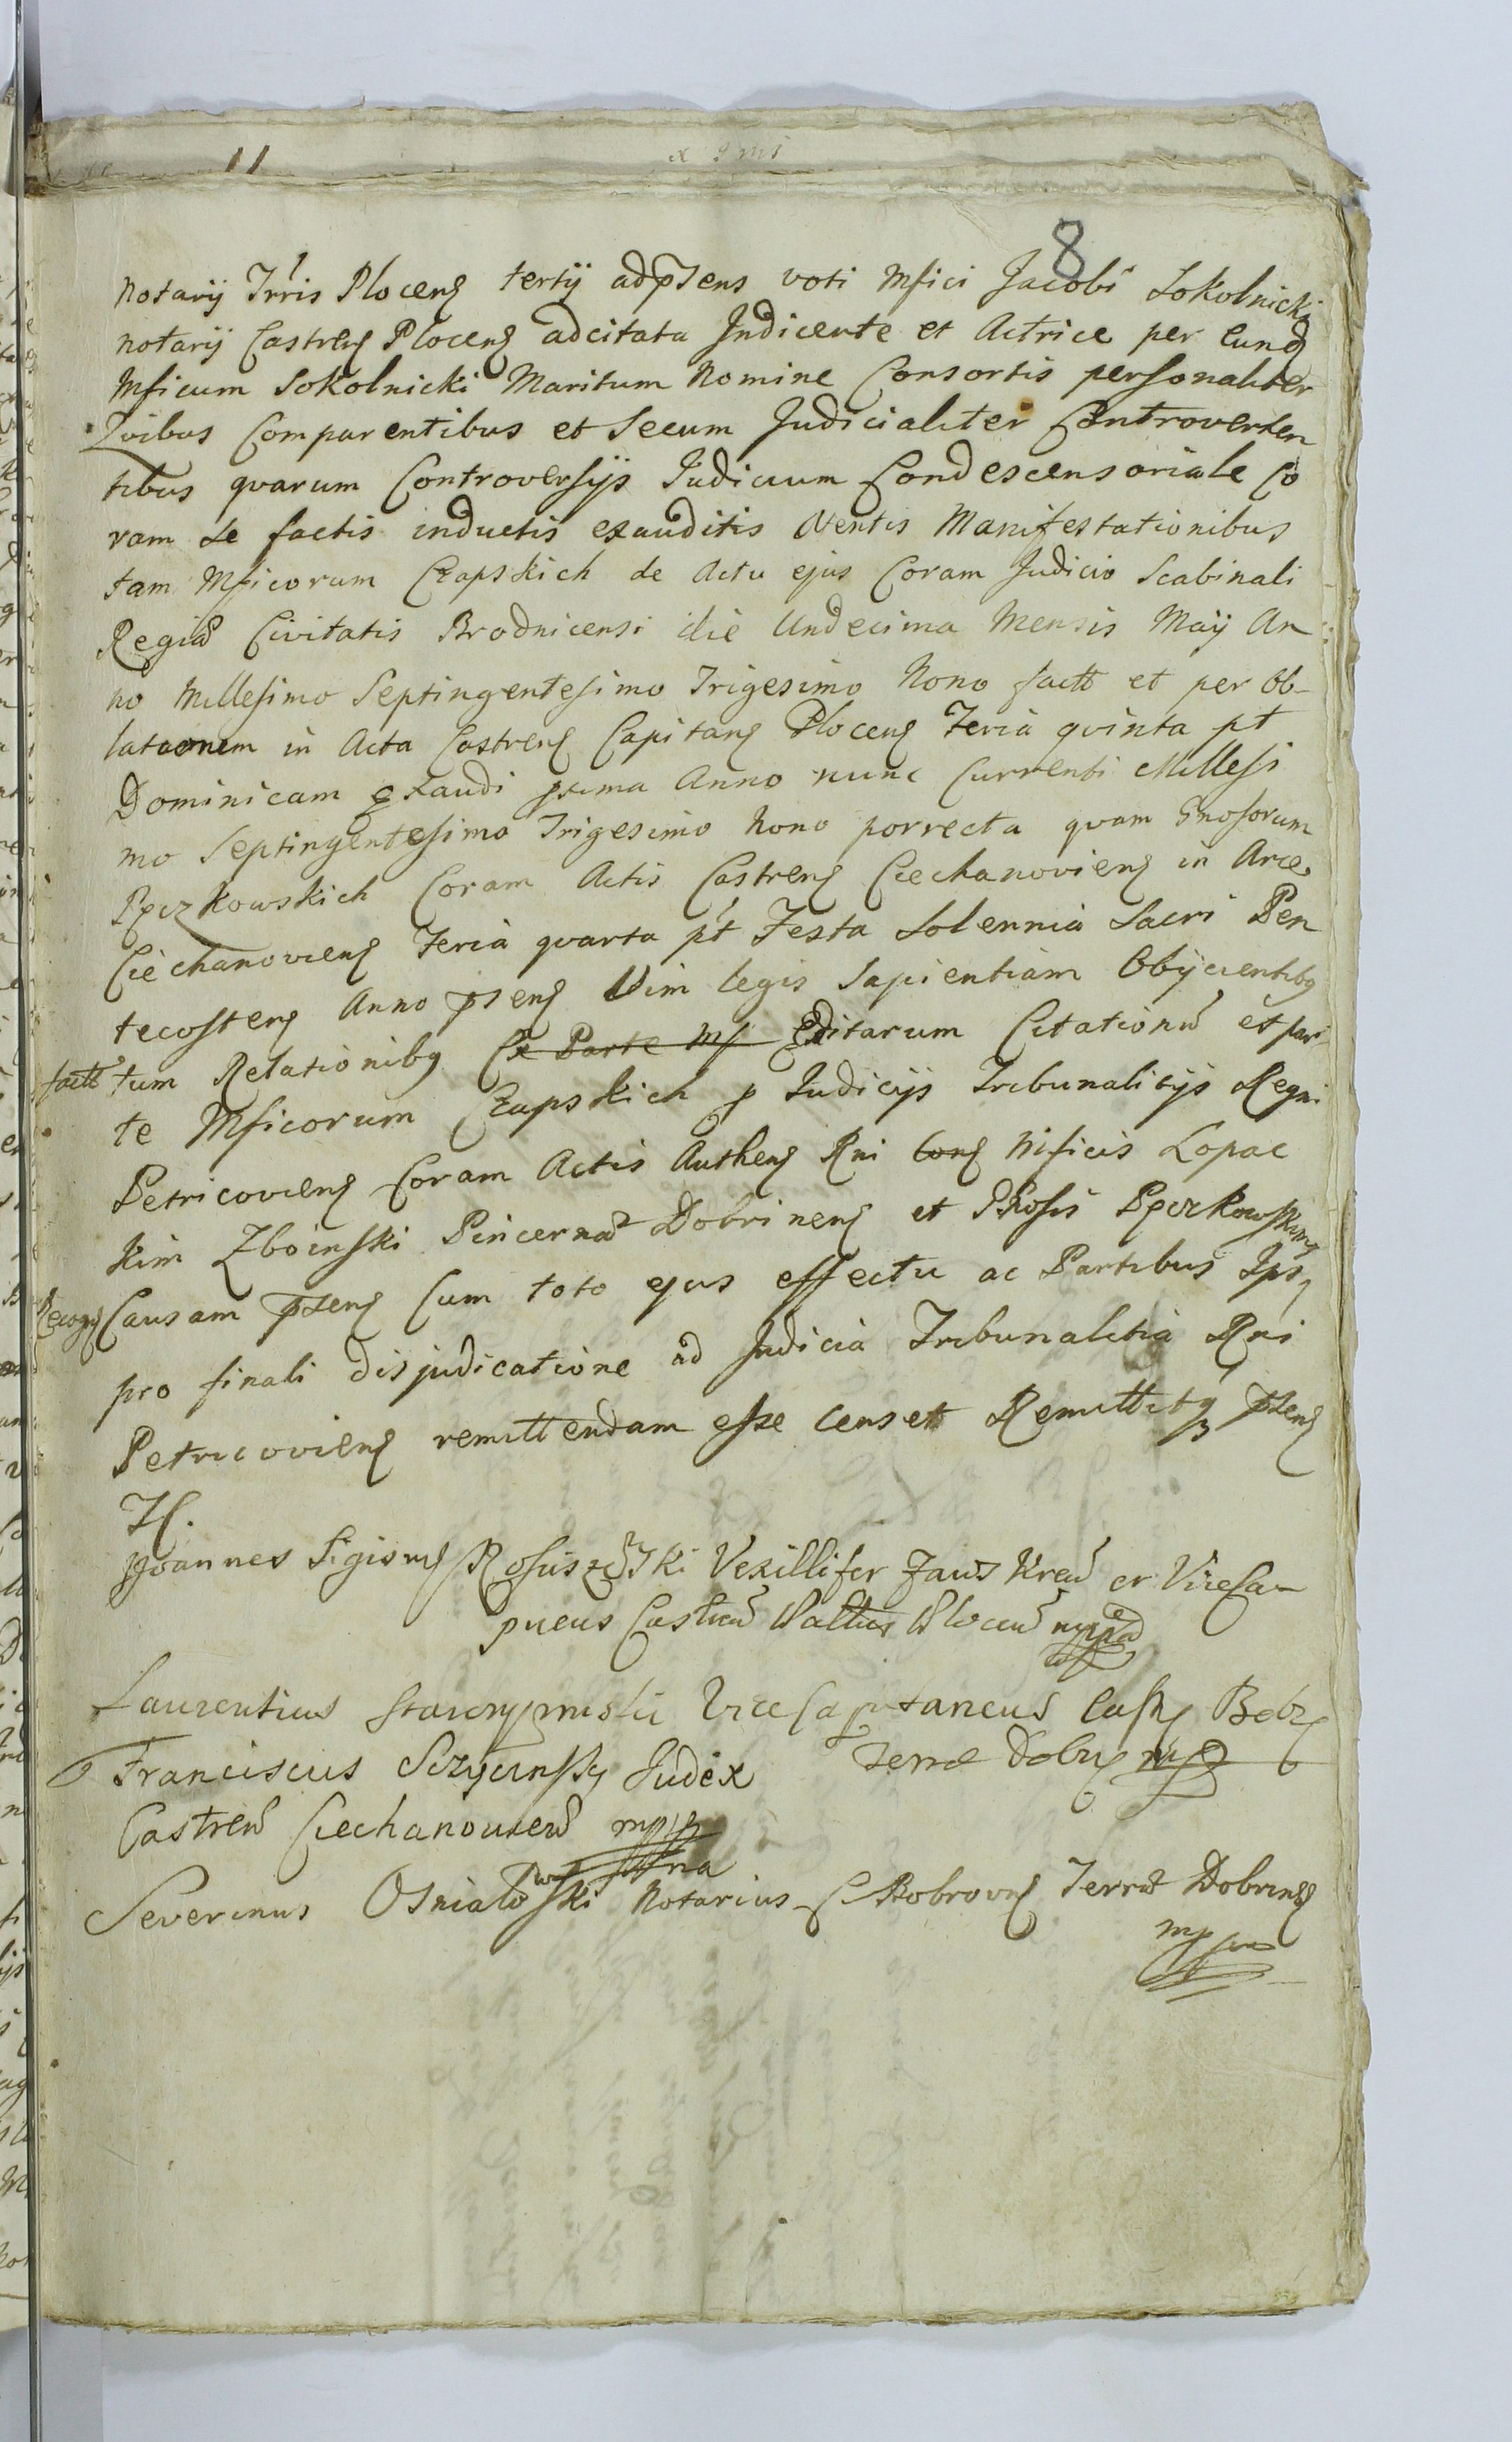 11
8
Notarij Trris Plocens tertij adpsens voti Mfici Jacobi Sokolnicki
Notarij Castren Plocens adcitata Indicente et Actrice per eund
Mficum Sokolnicki Maritum Nomine Consortis personaliter
Qvibus Comparentibus et Secum Judicialiter Controverten
tibus qvarum Controversijs Judicium Condescensoriale Co
ram se factis inductis exauditis Ventis Manifestationibus
tam Mficorum Czapskich de Actu ejus Coram Judicio Scabinali
Regia Civitatis Brodnicensi die Undecima Mensis Maij An
no Millesimo Septingentesimo Trigesimo Nono factt et per Ob-
lataonem in Acta Castren Capitan Plocen Feria qvinta pt
Dominicam Exaudi pxima Anno nunc Currenti Millesi
mo Septingentesimo Trigesimo Nono porrecta qvam Gnosorum
Pęczkowskich Coram Actis Castren Ciechanovien in Arce
Ciechanovien Feria qvarta pt Festa Solennia Sacri Pen
tecosten Anno psen Vim legis Sapientiam Obijcientibq
factt tum Relationibq Ex Parte Mf Editarum Citationu et par
te Mficorum Czapskich p Judicijs Tribunalitijs Regni
Petricovien Coram Actis Authen Rni Con Mificis Lopac
kim Zboinski Pincerna Dobrinen et Gnosis Pęczkowskimq
Recogn Causam psen Cum toto ejus effectu ac Partibus Ips
pro finali disjudicatione ad Judicia Tribunalitia Rni
Petricovien remittendam esse censet Remittitq psen
Joannes Sigism Vexillifer Zaws Kren et ViceCa-
pneus Castren
Laurentius ViceCapitaneus Cast Bobr
Terrae Dobr mp
Franciscus Judex
Castren Ciechanovien mpp
Severinus Osniałowski Notarius C Bobrovn Terrae Dobrinen
mp